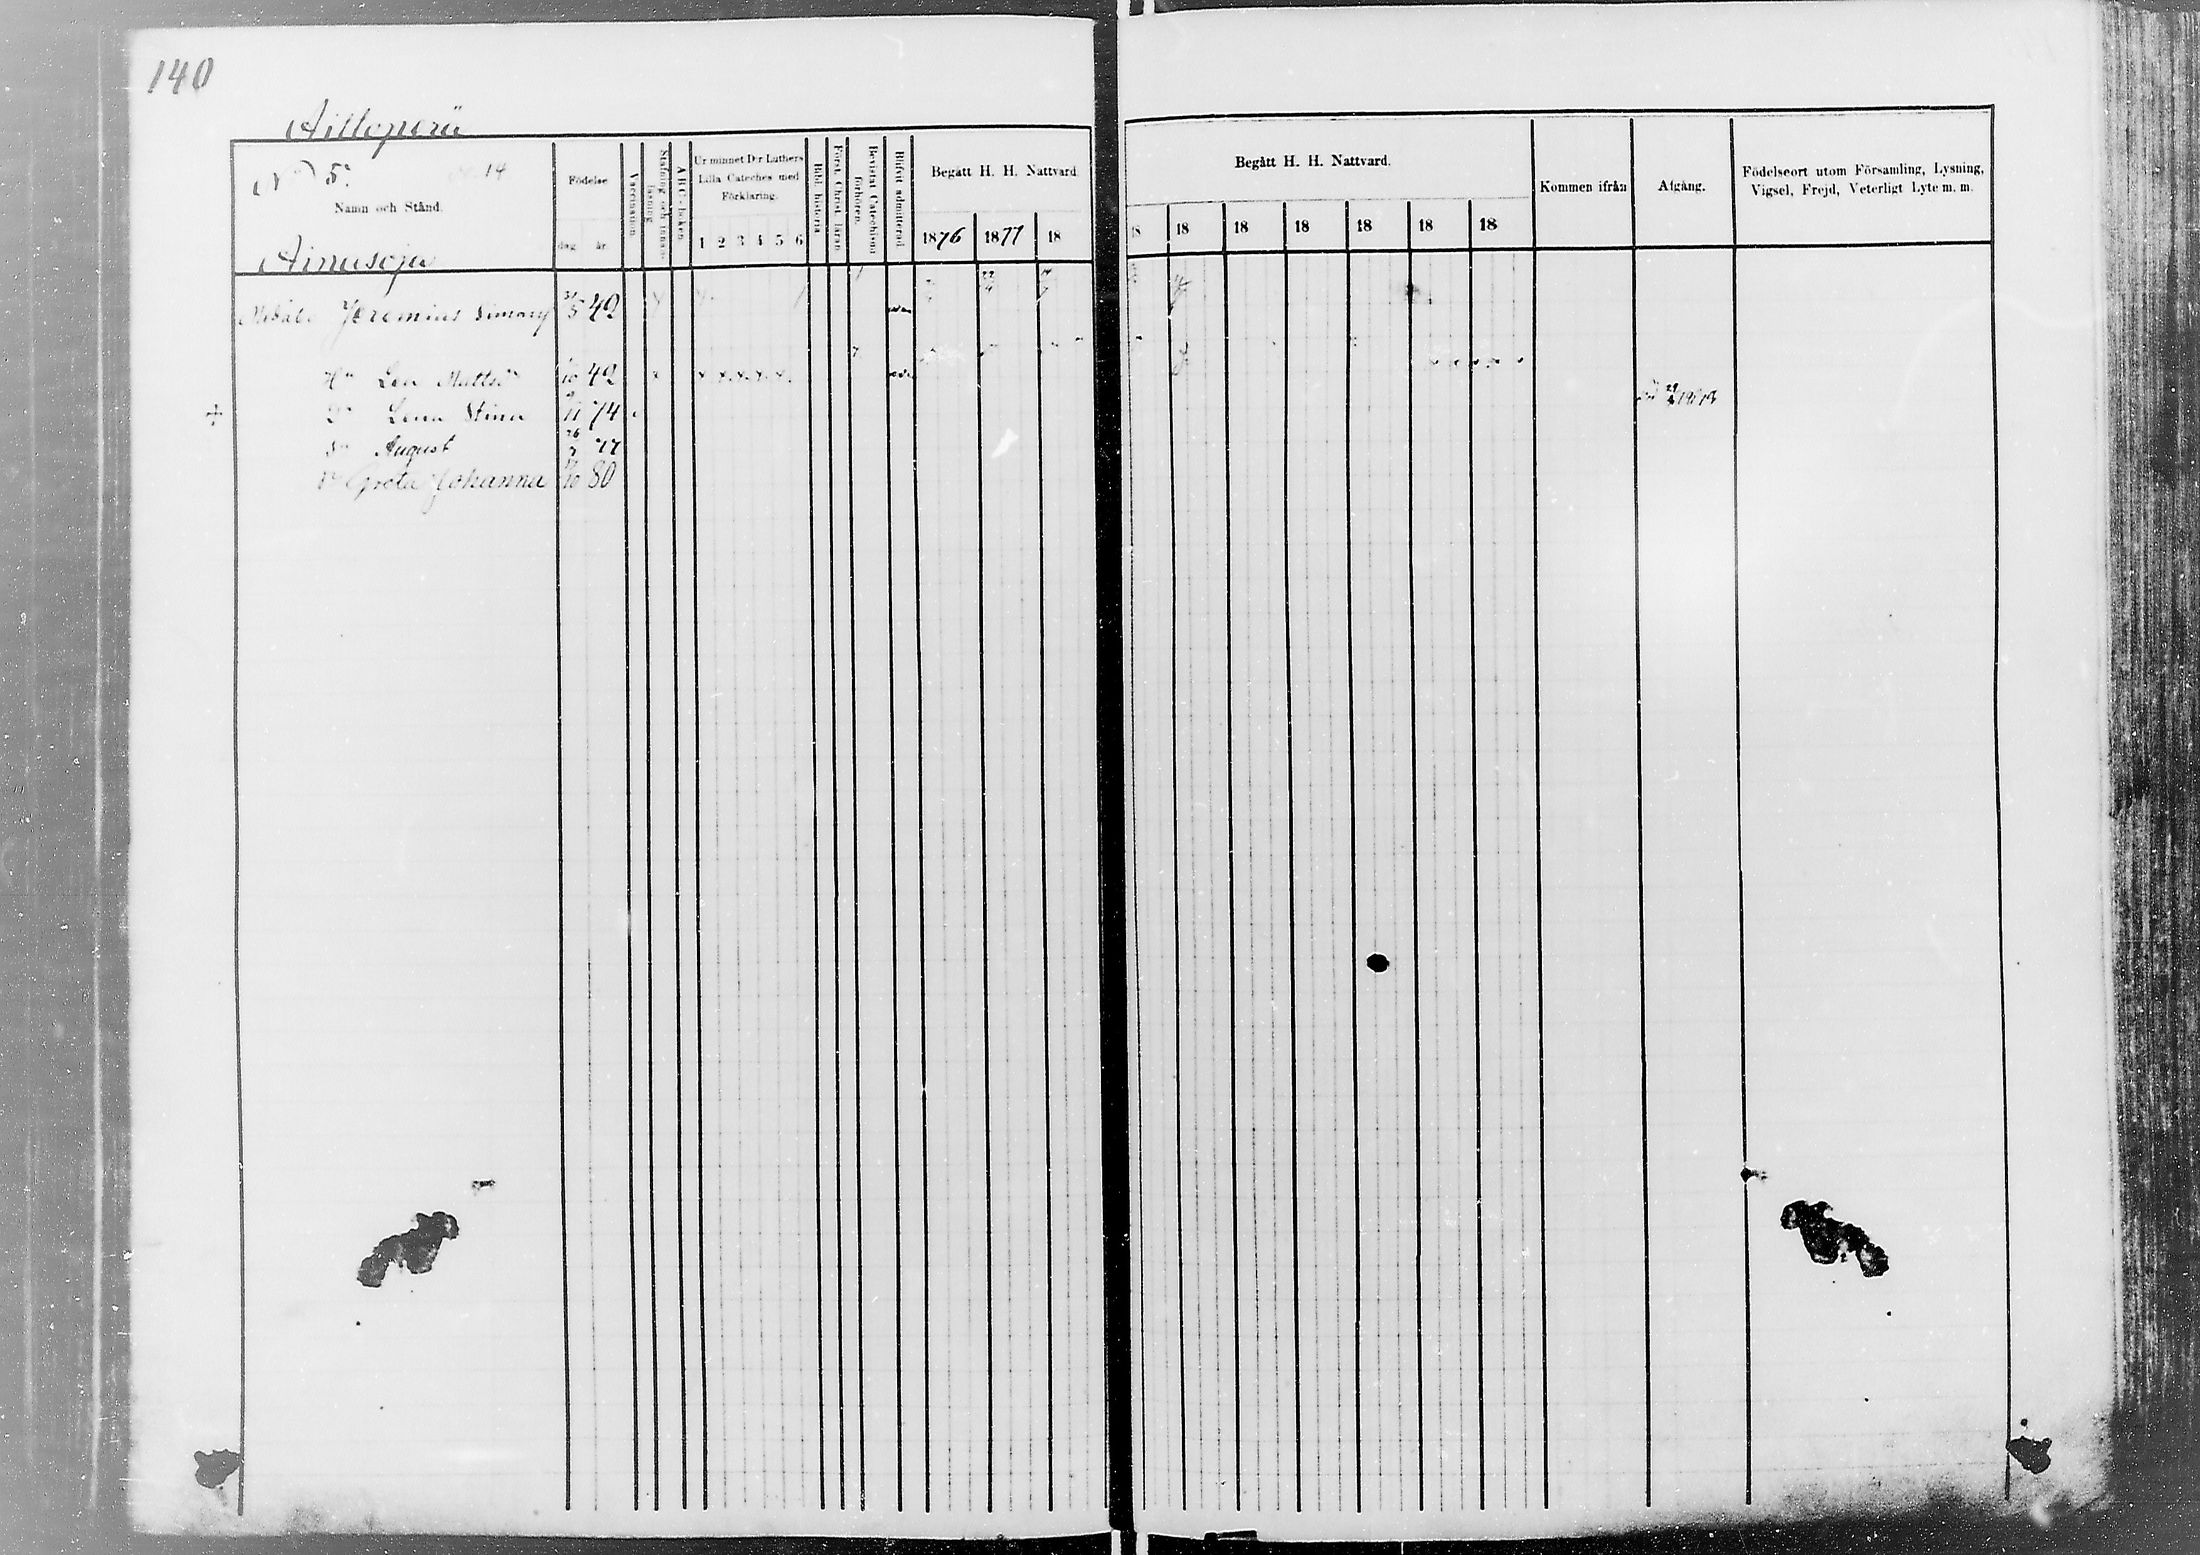 140
Aittoperä
N° 5.
14
Namn och Stånd.
Födelse
dag år.
Vaccination
Stafning och innanläsning.
A B C-boken
Ur minnet D:r Luthers Lilla Cateches med Förklaring.
1 2 3 4 5 6
Bibl. historia
Först. Christ. läran.
Bevistat Catechismi förhören.
Blifvit admitterad
Begått H. H. Nattvard.
1876 1877 18
Begått H. H. Nattvard.
18 18 18 18 18 18 18
Kommen ifrån
Afgång.
Födelseort utom Församling, Lysning,
Vigsel, Frejd, Veterligt Lyte m. m.
Ainusoja
Jeremias Simonss 31/5 42
Hu Lea Mattsd /10 42
Dr Lena Stina /11 74
Sn August 26/3 77
Dr Greta Johanna /10 80